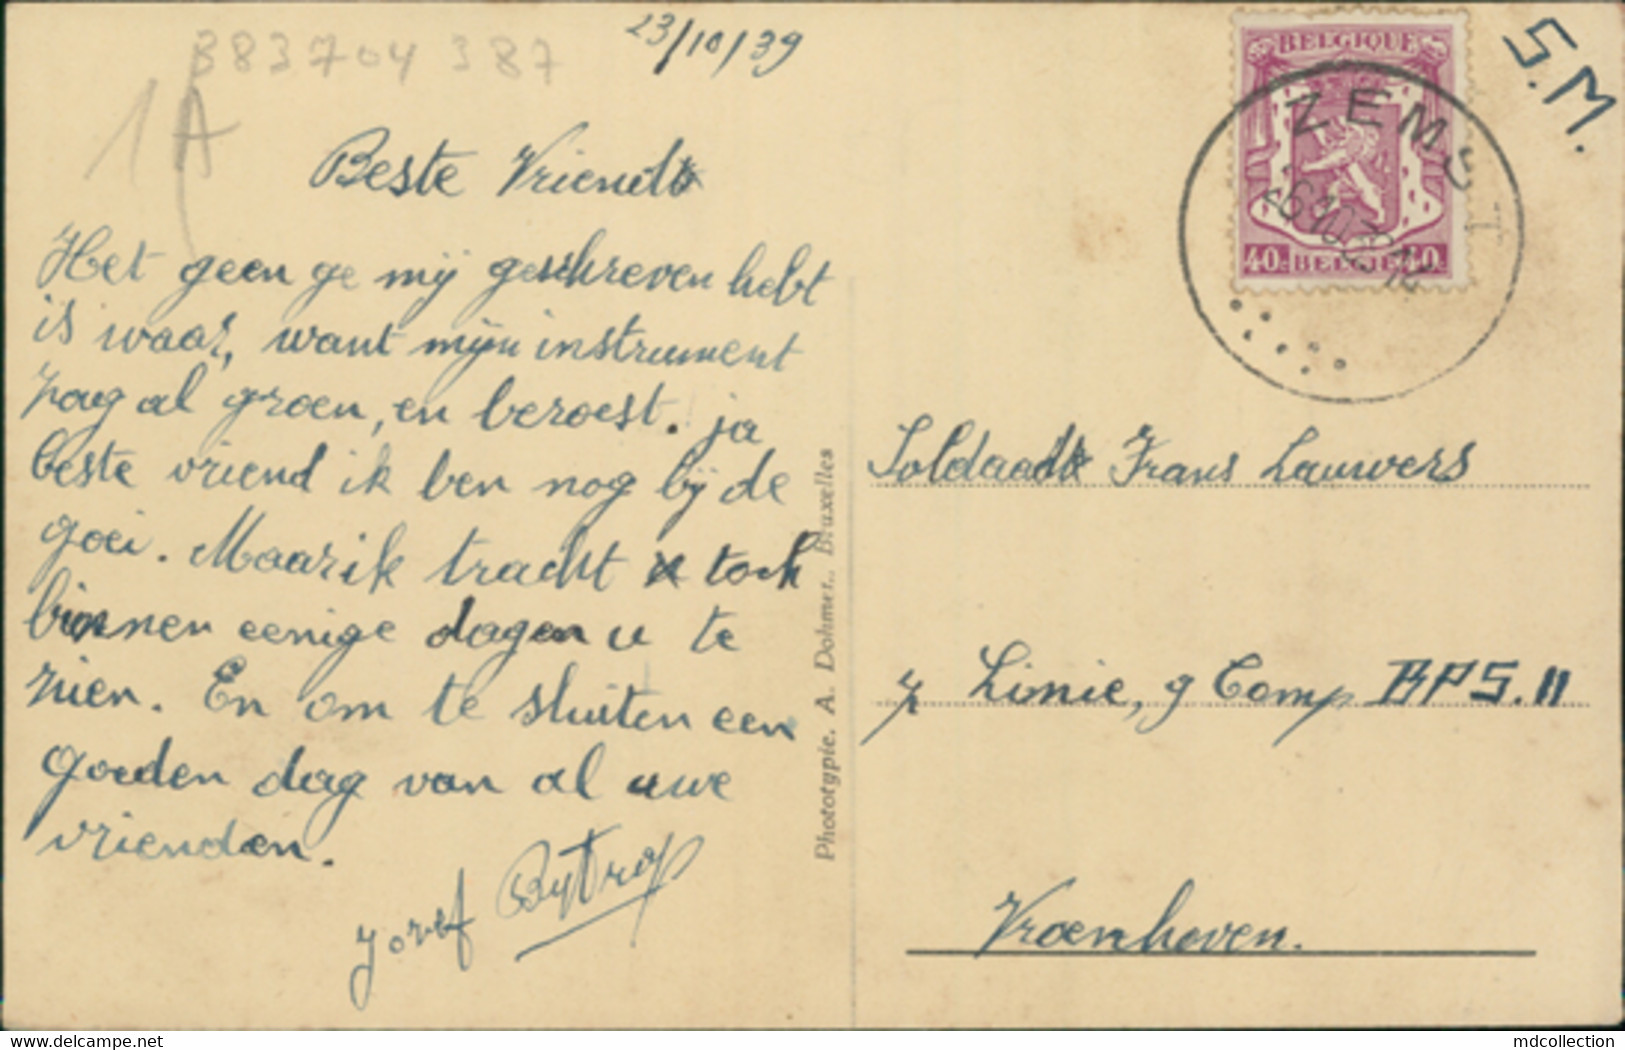 B83704387
1A
23/10/39
S.M.
BELGIQUE
ZEMST
40c BELGIE 40c
Beste Vriend
Het geen ge mij geschreven hebt
is waar, want mijn instrument
zag al groen, en beroest. ja
beste vriend ik ben nog bij de
goei. Maar ik tracht toch
binnen eenige dagen u te
zien. En om te sluiten een
goeden dag van al uwe
vrienden.
Jozef
Phototypie. A. Dohmen.. Bruxelles
Soldaat Frans Lauwers
7 Linie, 9 Comp BPS.11
Vroenhoven.
www.delcampe.net
mdcollection